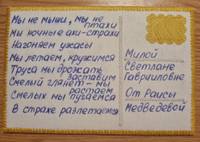 Мы не мыши, мы не
птахи
Мы ночные ахи-страхи
Нагоняем ужасы
Мы летаем, кружимся
Труса мы дрожать
заставим
Смелый глянет - мы
растаем
Смелых мы пугаемся
В страхе разлетаемся
Милой
Светлане
Гавриловне
От Раисы
Медведевой